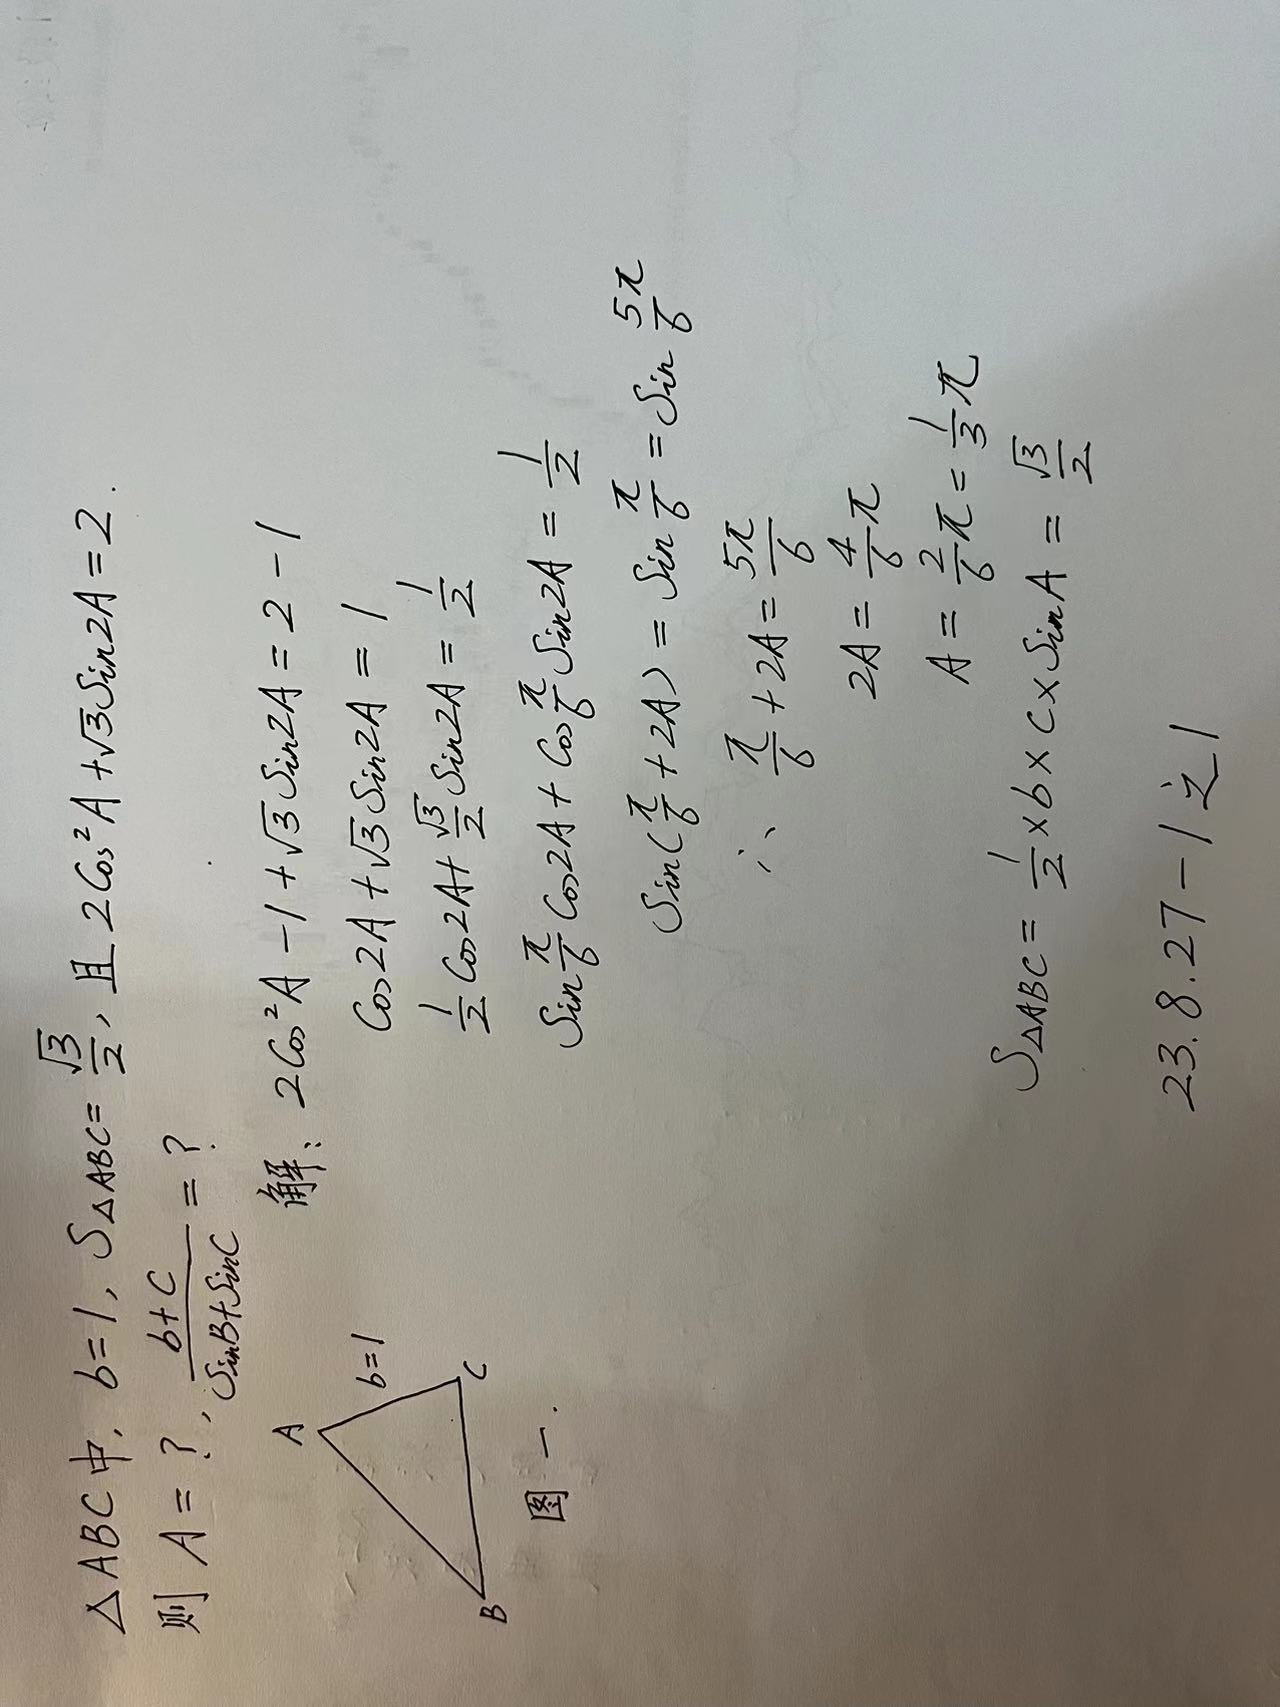 △ABC中, b=1, S△ABC=√3/2, 且 2Cos²A+√3Sin2A=2.
则 A=?, (b+C)/(SinB+SinC)=?
解: 2Cos²A-1+√3Sin2A=2-1
A
b=1
B
C
图一.
Cos2A+√3Sin2A=1
1/2Cos2A+√3/2Sin2A=1/2
Sinπ/6Cos2A+Cosπ/6Sin2A=1/2
Sin(π/6+2A)=Sinπ/6=Sin5π/6
∴ π/6+2A=5π/6
2A=4/6π
A=2/6π=1/3π
S△ABC=1/2×b×C×SinA=√3/2
23.8.27-1之1